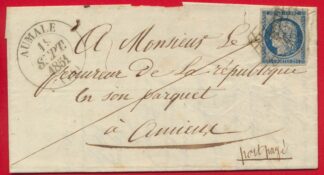 AUMALE
SEPT.
1851
A Monsieur Le
procureur de La république
En son parquet
à Amiens
port payé